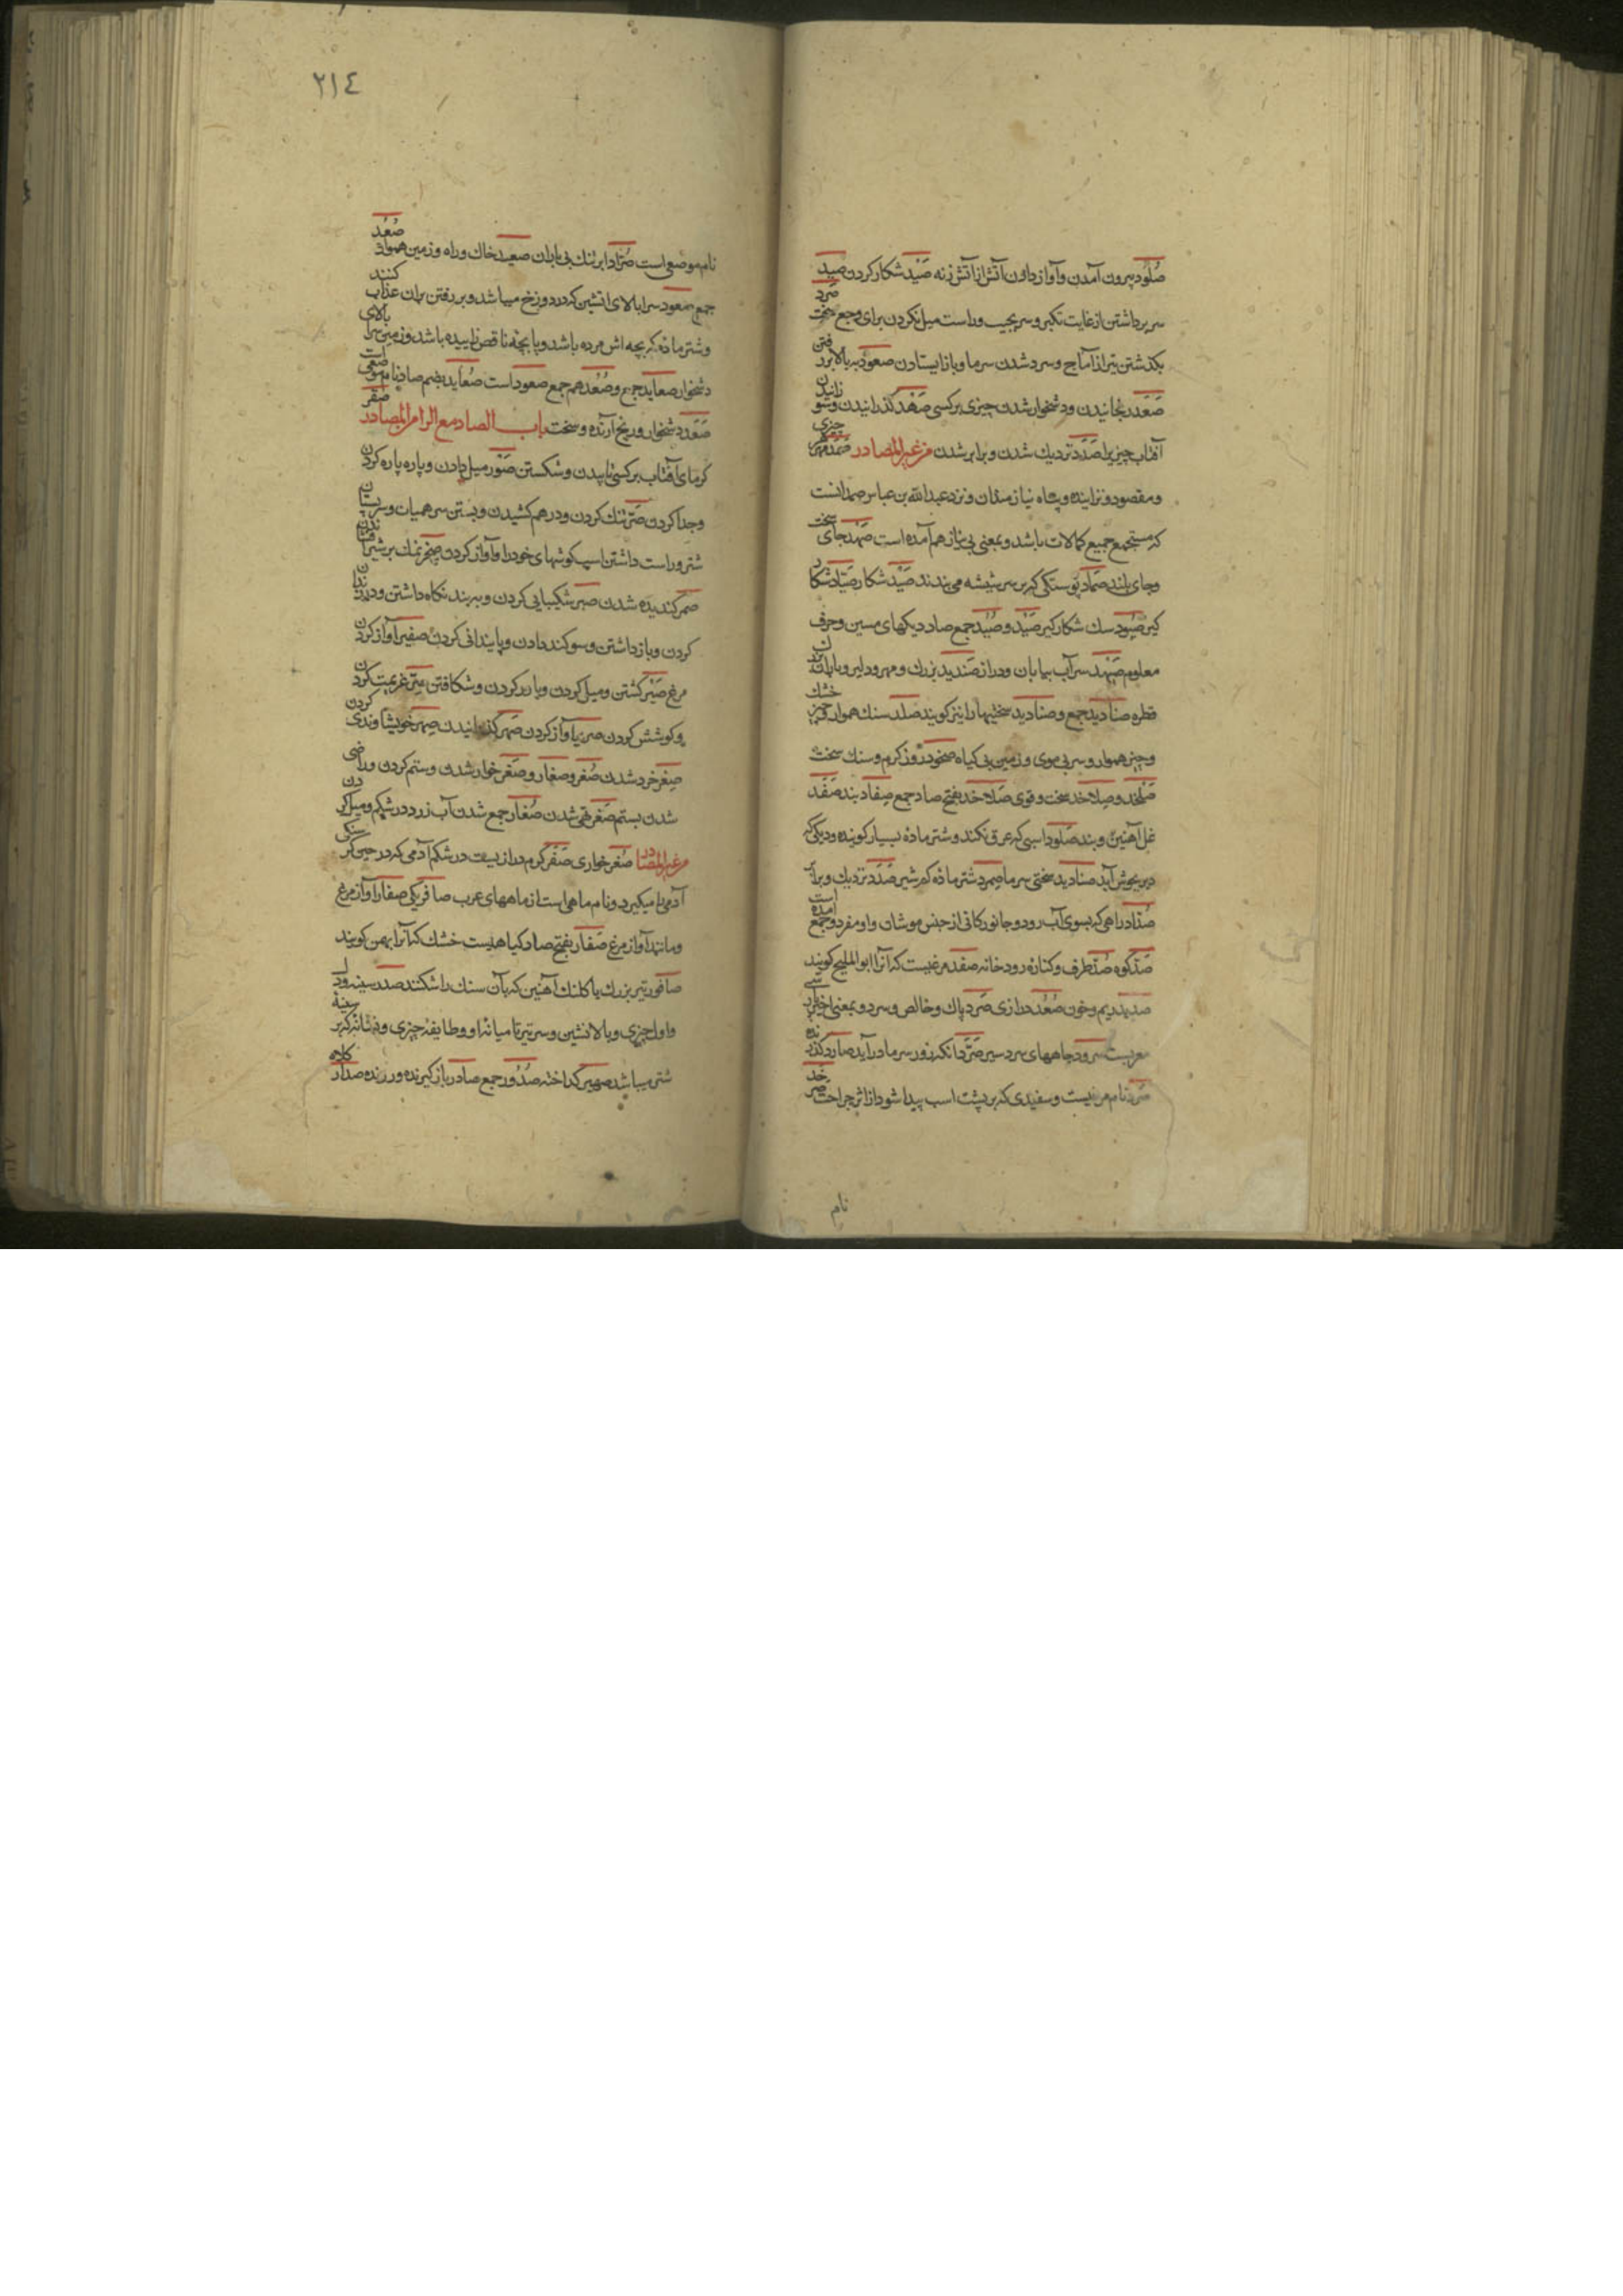 صُلُود بیرون آمدن و آواز دادن آتش از آتش زنه صَیْد شکار کردن صید
سر برداشتن از غایت تکبر و سر بجیب و راست میل نکردن برای وجع سخت صرد
بکذشتن تیر از آماج و سرد شدن سرما و باز ایستادن صعود ببالا بر رفتن
صَعَد رنجانیدن و دشخوار شدن چیزی بر کسی صَهْد کذرانیدن و سوزانیدن
آفتاب چیزیرا صَدَد نزدیك شدن و برابر شدن من غیر المصادر صَمَد مهتر
و مقصود و نزاینده و پناه نیازمندان و نزد عبدالله بن عباس صمد آنست
که مستجمع جمیع کمالات باشد و بمعنی بی نیاز هم آمده است صَمْد جای سخت
و جای بلند صِمَاد پوستکی که بر سر شیشه می بندند صَیْد شکار صَیّاد شکار
کیر صَیُود سك شکار کیر صَیْد و صُیُد جمع صاد دیکهای مسین و حرف
معلوم صَیْهَد سرآب بیابان و دراز صَنْدید بزرك و مهتر و دلیر و باران بزرك
قطره صنادید جمع و صنادید سختیها را نیز کویند صلد سنك هموار خشك
و چیز هموار و سر بی موی و زمین بی کیاه صَیْخود روز کرم و سنك سخت
صَلَخد و صِلاخد سخت و قوی صَلاخد بفتح صاد جمع صِفاد بند صَفَد
غل آهنین و بند صَلود اسبی که عرق نکند و شتر ماده بسیار کوینده و دیکی که
دیر بجوش آید صنادید سختی سرما صِمرد شتر ماده کم شیر صَدَد نزدیك و برابر
صُدّاد راهی که بسوی آب رود و جانور کانی از جنس موشان و او مفرد و جمع آمده است
صَدّ کوه صُدّ طرف و کناره رودخانه صفد مرغیست که آنرا ابوالملیح کویند
صدید ریم و خون صُعُد درازی صَرد پاك و خالص و سرد و بمعنی
سرود جاههای سردسیر صَرّد آنکه زود سرما در آید صارد کذرنده
صُرَد نام مرغیست و سفیدی که بر پشت اسب پیدا شود از اثر جراحت
نام
٢١٤
نام موضعی است صُرّاد ابر تنك بی باران صعید خاك و راه و زمین هموار صُعُد
جمع صعود سرابالای آتشین که در دوزخ میباشد و بر رفتن بران عذاب کنند
و شتر ماده که بچه اش مرده باشد و یا بچه ناقص زاییده باشد و زمین سرا بالای
دشخوار صعاید جمع و صُعُد هم جمع صعود است صُعاید بضم صاد نام موضعی است
صَعَد دشخوار و رنج آرنده و سخت باب الصاد مع الراء من المصادر صقر
کرمای آفتاب بر کسی تابیدن و شکستن صَوْر میل دادن و پاره پاره کردن
و جدا کردن صَرّ تنك کردن و درهم کشیدن و بستن سر همیان و سر پستان
شتر و راست داشتن اسپ کوشهای خود را و آواز کردن
صمر کندیده شدن صبر شکیبایی کردن و به بند نکاه داشتن و
کردن و باز داشتن و سوکند دادن و پایندانی کردن صفیر آواز کردن
مرغ صَیْر کشتن و میل کردن و پاره کردن و شکافتن صِرّ عزیمت کردن
و کوشش کردن صریر آواز کردن صَهر کدازانیدن صِهر خویشاوندی کردن
صِغَر خرد شدن صُغر و صغار و صَغَر خوار شدن و ستم کردن و راضی
شدن بستم صَفَر تهی شدن صُفار جمع شدن آب زرد در شکم و میل کردن
من غیر المصادر صُغر خواری صَفَر کرم درازیست در شکم آدمی که در حین کرسنکی
آدمی را میکیرد و نام ماهی است از ماههای عرب صافر یکی صفار آواز مرغ
و مانند آواز مرغ صَفار بفتح صاد کیاهیست خشك که آنرا بهمن کویند
صاقور تبر بزرك یا کلنك آهنین که بآن سنك را شکنند صدر سینه و
و اول چیزی و بالانشین و سر تیر تا میانه او و طایفه چیزی و نشانه که بر سینه
شتر میباشد صهیر کداخته صُدُور جمع صادر باز کیرنده و رزنده صدار کلاه